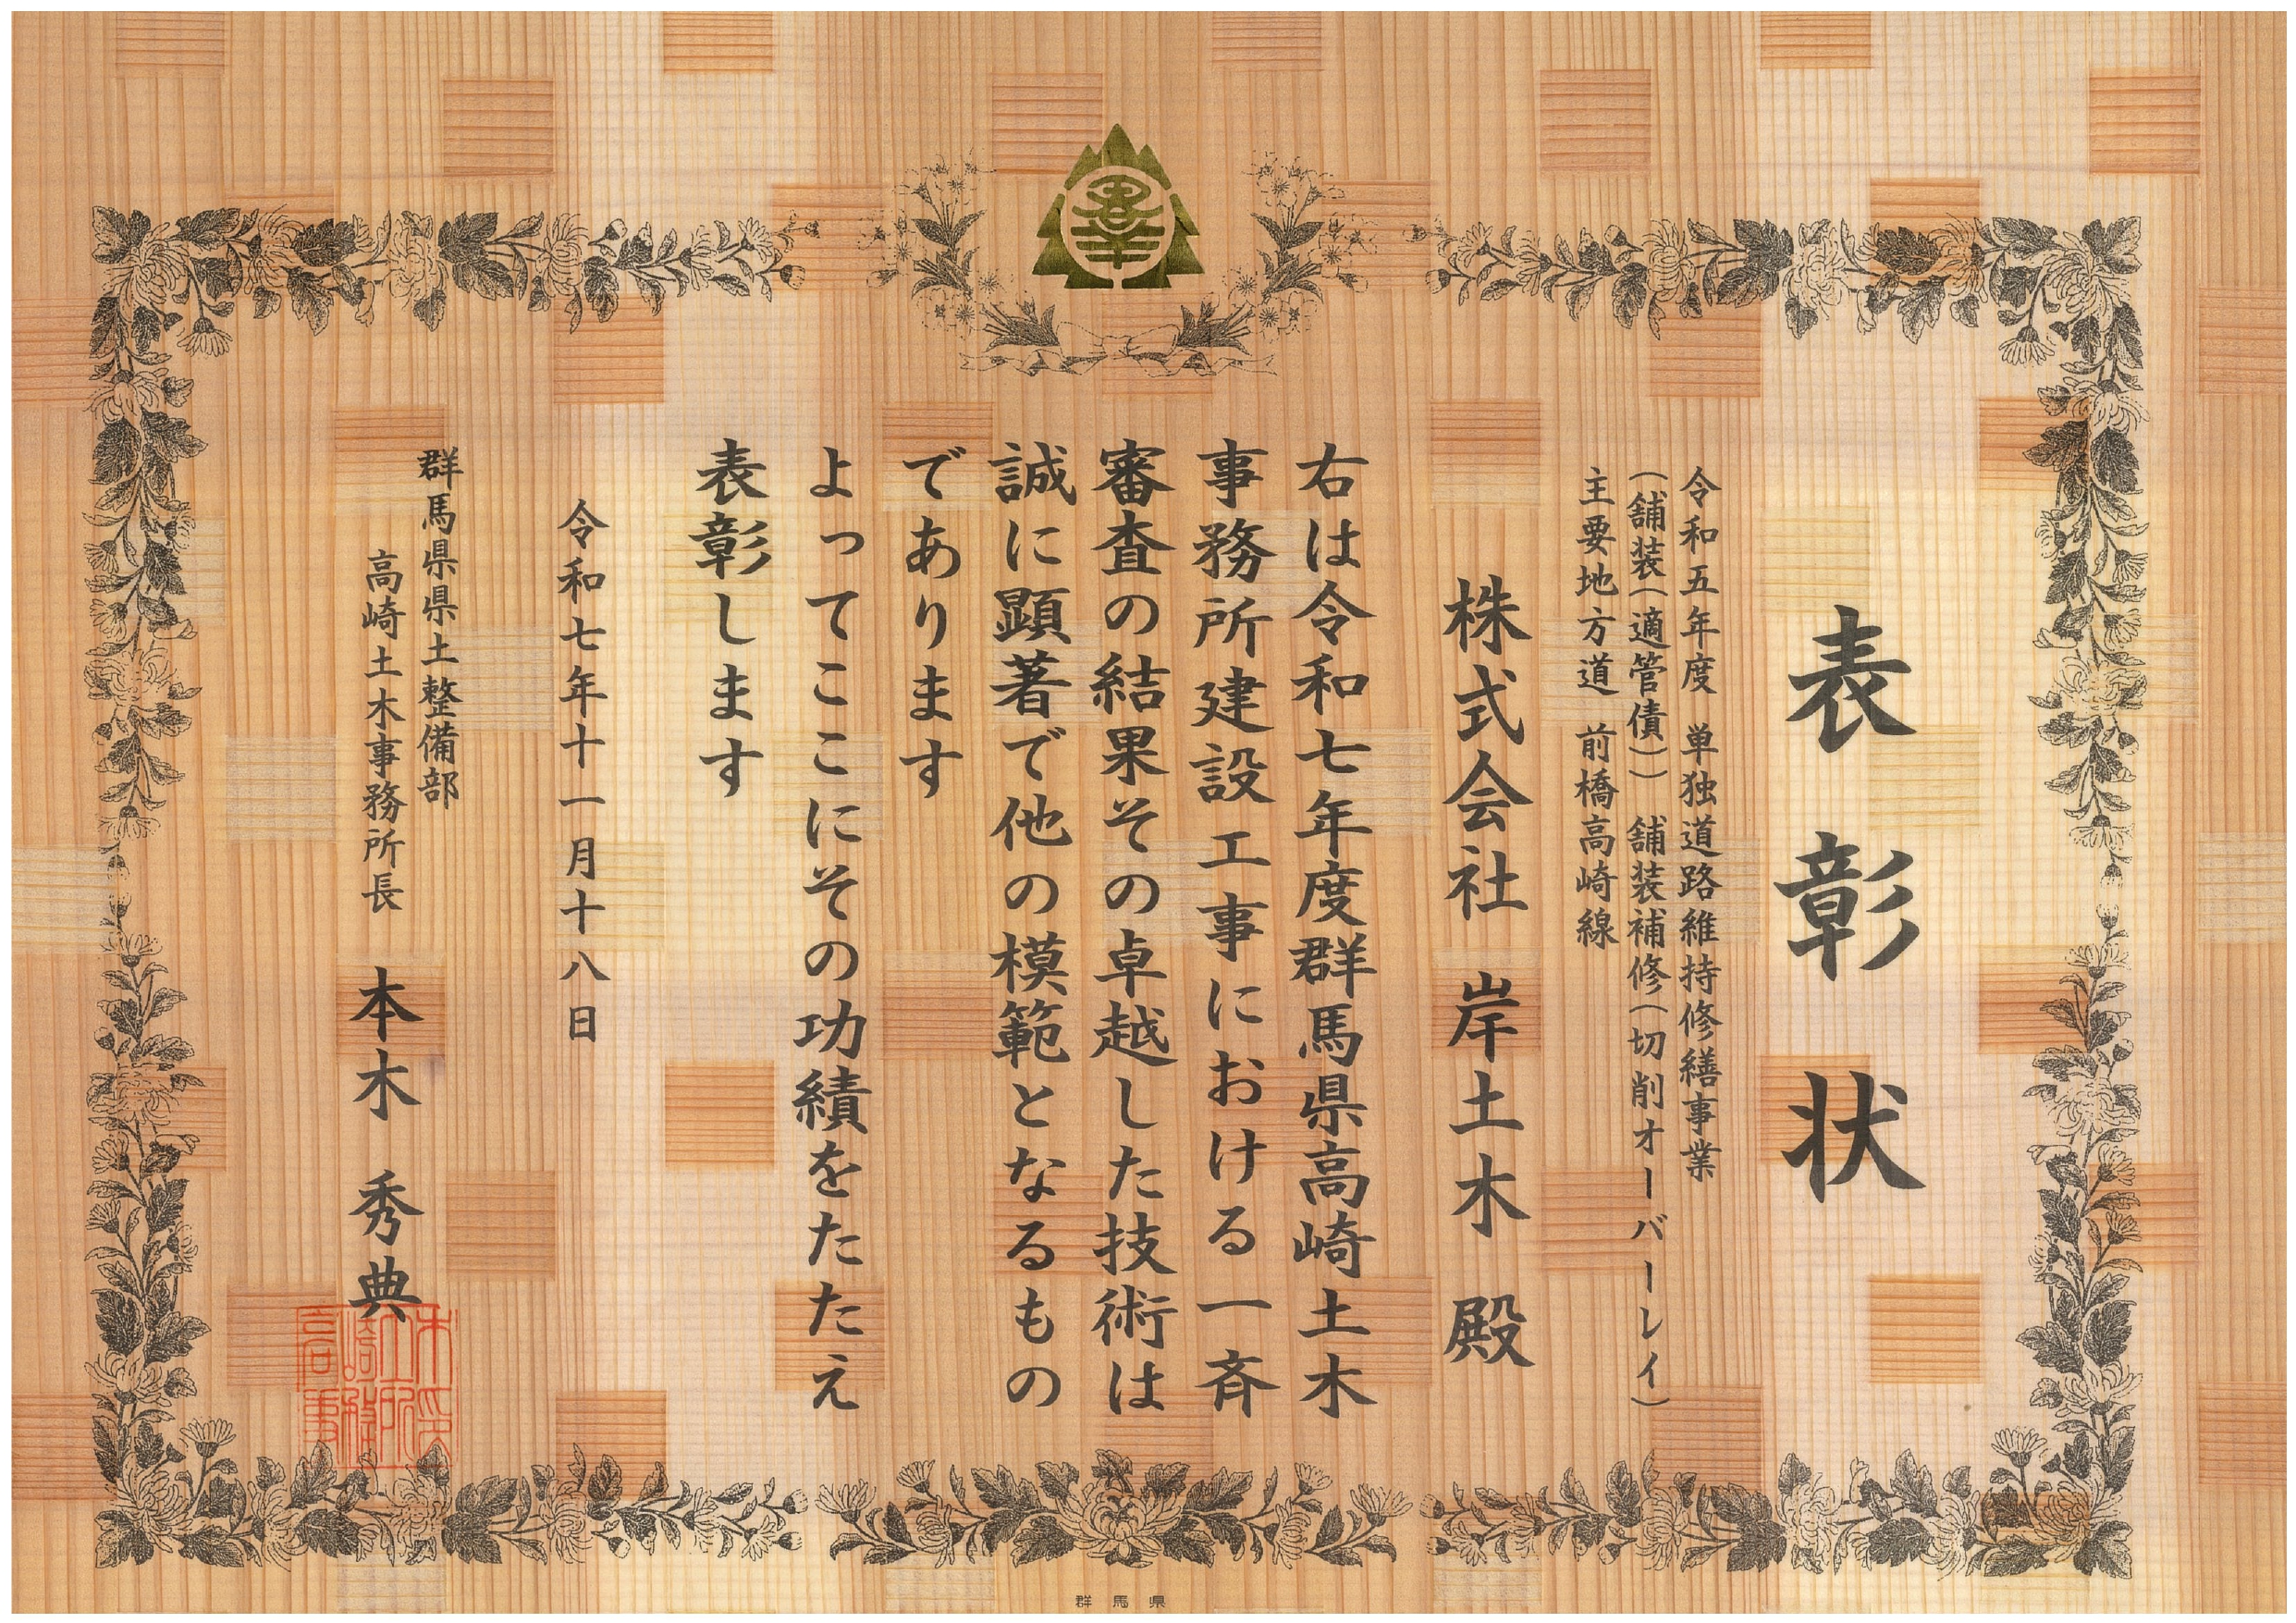 表彰状
令和五年度 単独道路維持修繕事業
(舗装(適管債)) 舗装補修(切削オーバーレイ)
主要地方道 前橋高崎線
株式会社 岸土木 殿
右は令和七年度群馬県高崎土木
事務所建設工事における一斉
審査の結果その卓越した技術は
誠に顕著で他の模範となるもの
であります
よってここにその功績をたたえ
表彰します
令和七年十一月十八日
群馬県県土整備部
高崎土木事務所長 本木 秀典
群馬県